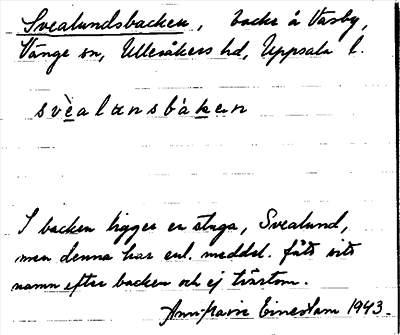 Svealundsbacken, backe å Väsby,
Vänge sn, Ulleråkers hd, Uppsala l.
svèalunsbàken
I backen ligger en stuga, Svealund,
men denna har enl. meddel. fått sitt
namn efter backen och ej tvärtom.
Ann-Marie 1943.